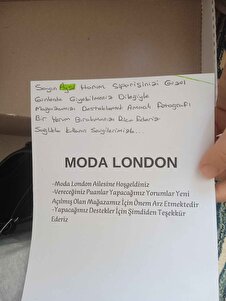 Sayın Ayşe Hanım Siparişinizi Güzel
Günlerde Giyebilmeniz Dileğiyle
Mağazamızı Desteklemek Amaçlı Fotoğraflı
Bir Yorum Bırakmanızı Rica Ederiz
Sağlıkla Kullanın Sevgilerimizle.
MODA LONDON
-Moda London Ailesine Hoşgeldiniz
-Vereceğiniz Puanlar Yapacağınız Yorumlar Yeni
Açılmış Olan Mağazamız İçin Önem Arz Etmektedir
-Yapacağınız Destekler İçin Şimdiden Teşekkür
Ederiz